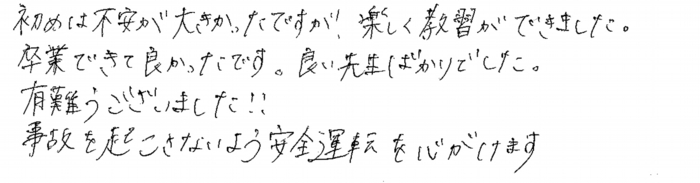 初めは不安が大きかったですが、楽しく教習ができました。
卒業できて良かったです。良い先生ばかりでした。
有難うございました!!
事故を起こさないよう安全運転を心がけます